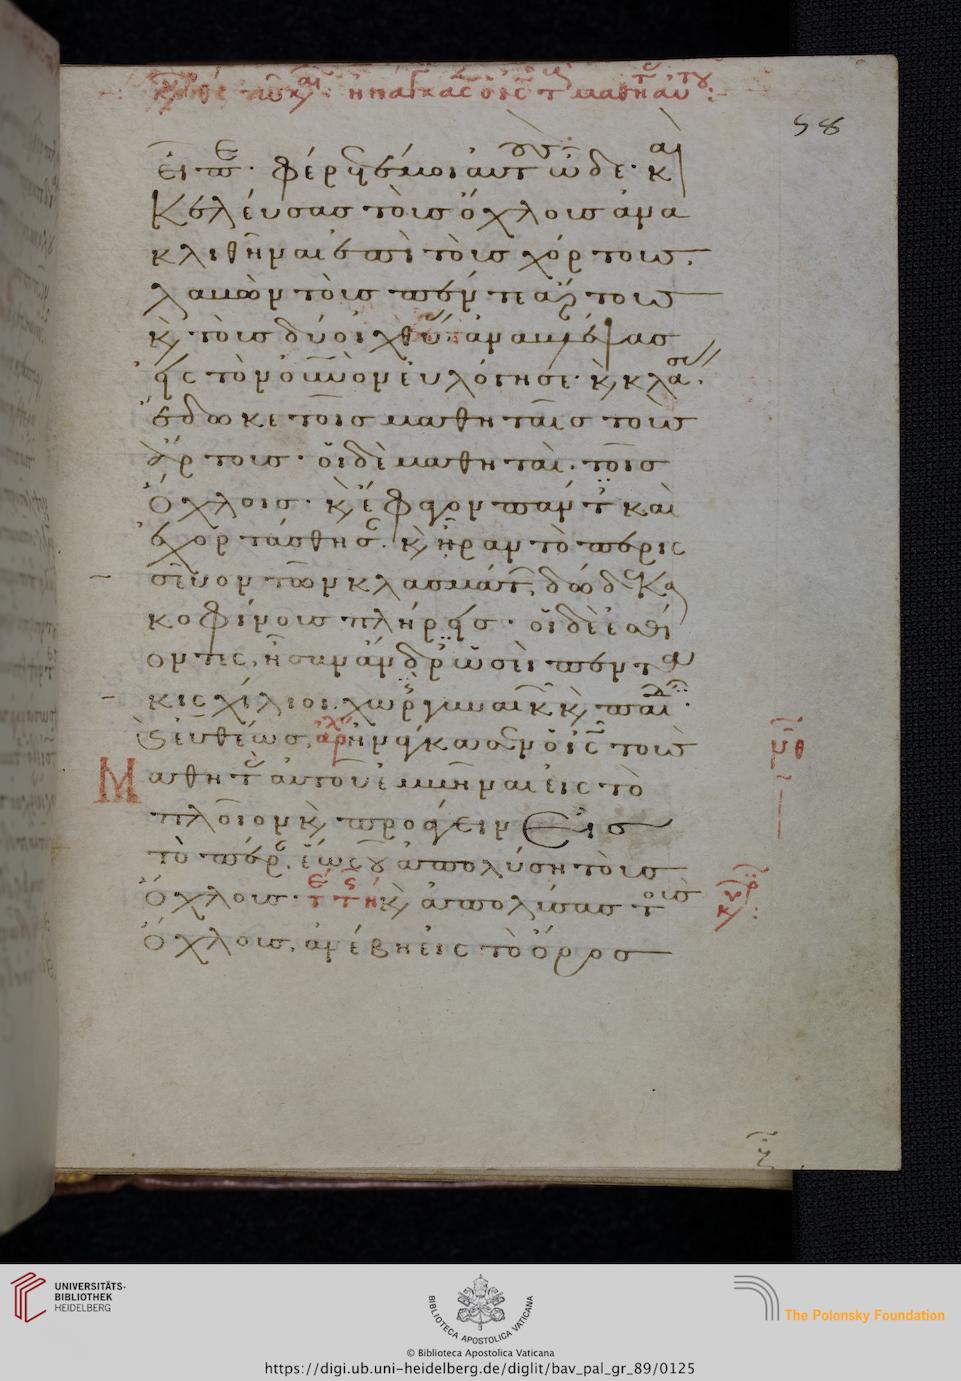 58
εἶπε· φέρετέ μοι αὐτοὺς ὧδε· καὶ
Κελεύσας τοὺς ὄχλους ἀνα
κλιθῆναι ἐπὶ τοὺς χόρτους.
λαβὼν τοὺς πέντε ἄρτους
κ τοὺς δύο ἰχθύας ἀναβλέψας
εἰς τὸν οὐνὸν εὐλόγησε· κ κλάσας
ἔδωκε τοῖς μαθηταῖς τοὺς
ἄρτους· οἱ δὲ μαθηταὶ. τοῖς
Ὄχλοις· κ ἔφαγον πάντες καὶ
ἐχορτάσθησαν. κ ἦραν τὸ περισ
σεῦον τῶν κλασμάτων, δώδεκα
κοφίνους πλήρεις· οἱ δὲ ἐσθί
οντες, ἦσαν ἄνδρες ὡσεὶ πεντα
κισχίλιοι. χωρὶς γυναικῶν κ παιδίων·
Καὶ εὐθέως, ἠνάγκασεν ὁ ις τοὺς
Μαθητὰς αὐτοῦ ἐμβῆναι εἰς τὸ
πλοῖον κ προάγειν Εἰς
τὸ πέραν. ἕως οὗ ἀπολύσῃ τοὺς
Ὄχλους· κ ἀπολύσας τοὺς
Ὄχλους, ἀνέβη εἰς τὸ ὄρος
UNIVERSITÄTS-
BIBLIOTHEK
HEIDELBERG
BIBLIOTECA APOSTOLICA VATICANA
© Biblioteca Apostolica Vaticana
The Polonsky Foundation
https://digi.ub.uni-heidelberg.de/diglit/bav_pal_gr_89/0125